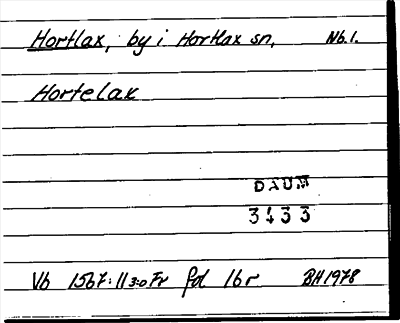 Hortlax, by i Hortlax sn, Nb.1.
Hortelax
DAUM
3433
Vb 1567:11 3:0 Fr fol 16r BH1978